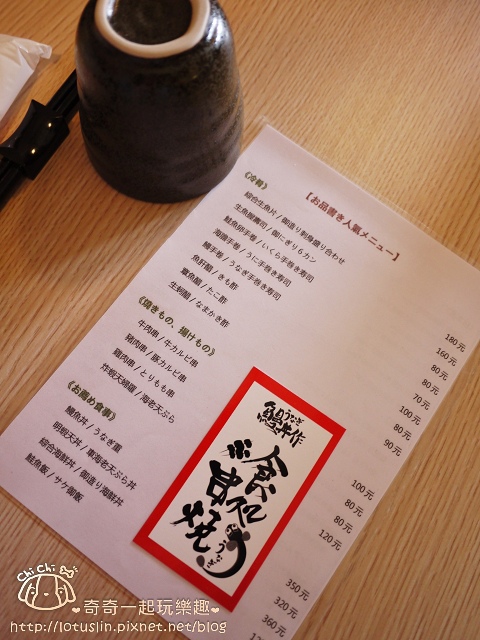 【お品書き人氣メニュー】
《冷餚》
綜合生魚片 / 御造り刺身盛り合わせ 180元
生魚握壽司 / 御にぎり6カン 160元
鮭魚卵手卷 / いくら手巻き寿司 80元
海膽手卷 / うに手巻き寿司 80元
鰻手卷 / うなぎ手巻き寿司 70元
魚肝醋 / きも酢 100元
章魚醋 / たこ酢 80元
生蚵醋 / なまかき酢 90元
《燒きもの、揚げもの》
牛肉串 / 牛カルビ串 100元
豬肉串 / 豚カルビ串 80元
雞肉串 / とりもも串 80元
炸蝦天婦羅 / 海老天ぷら 120元
《お薦め食事》
鰻魚丼 / うなぎ重 350元
明蝦天丼 / 車海老天ぷら丼 320元
綜合海鮮丼 / 御造り海鮮丼 360元
鮭魚飯 / サケ御飯
うなぎ
鰻丼作
食処
串焼
うなぎ
Chi Chi
奇奇一起玩樂趣
http://lotuslin.pixnet.net/blog